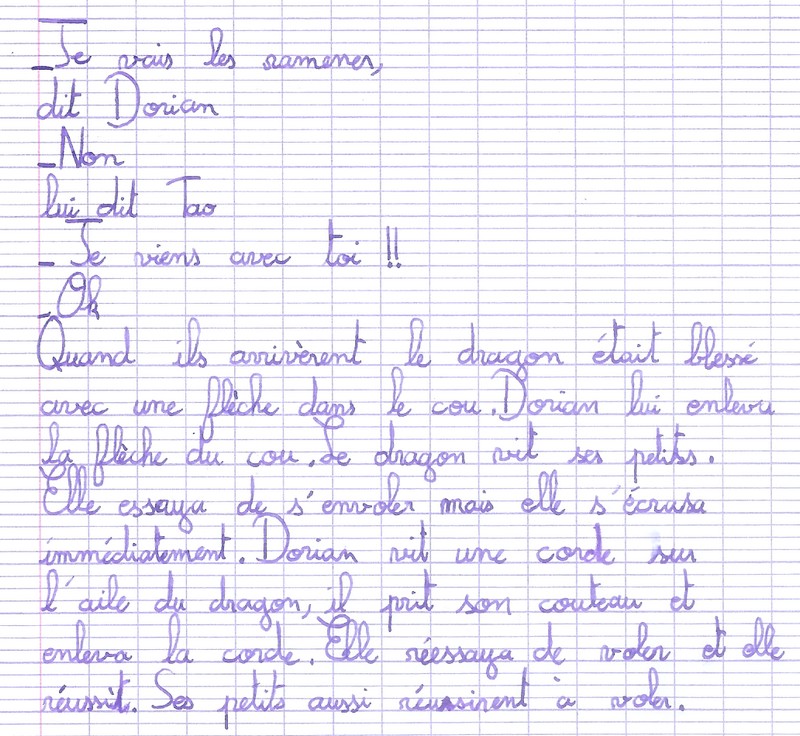 _Je vais les ramener,
dit Dorian
_Non
lui dit Tao
_ Je viens avec toi !!
_Ok
Quand ils arrivèrent le dragon était blessé
avec une flèche dans le cou. Dorian lui enleva
la flèche du cou. Le dragon vit ses petits.
Elle essaya de s'envoler mais elle s'écrasa
immédiatement. Dorian vit une corde sur
l'aile du dragon, il prit son couteau et
enleva la corde. Elle réessaya de voler et elle
réussit. Ses petits aussi réussirent à voler.